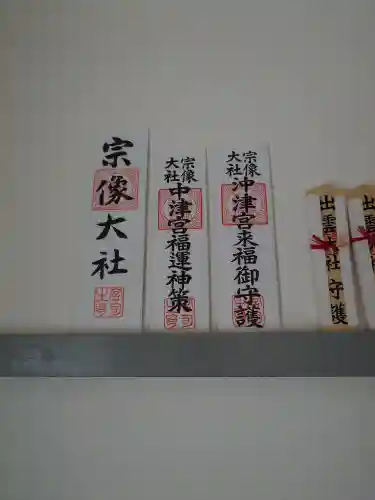 宗像大社
宗像大社
中津宮福運神策
宗像大社
沖津宮来福御守護
出雲大社守護
出雲
守護